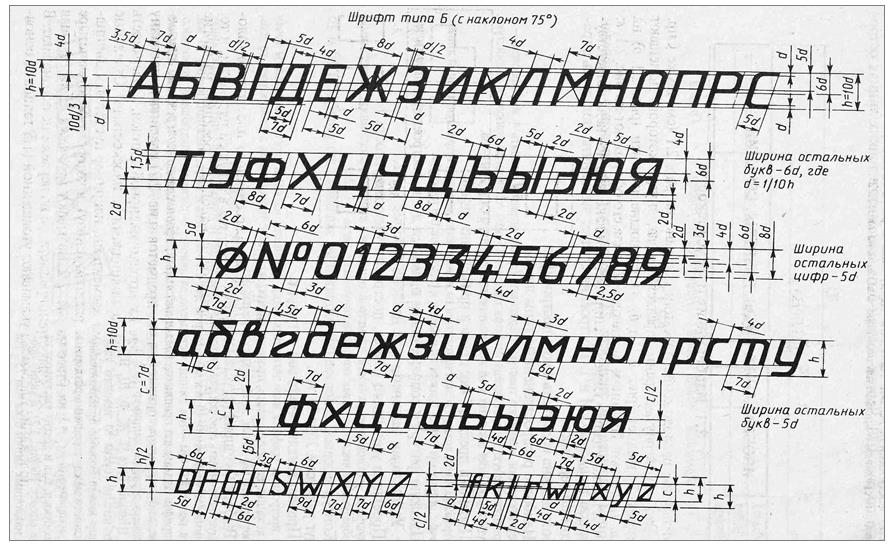 Шрифт типа Б (с наклоном 75°)
3,5d 7d d d/2 5d 4d 8d d/2 4d 7d
4d h=10d 10d/3 d
АБВГДЕЖЗИКЛМНОПРС
d 5d 6d h=10d
5d 7d d 5d d 5d 5d
2d 6d 5d 2d 2d 5d
1,5d 2d
ТУФХЦЧЩЪЫЭЮЯ
4d 6d 2d
Ширина остальных
букв-6d, где
d=1/10h
8d 7d d 8d d 2d
2d 6d 3d 2d
5d h
ØNº01233456789
2d 3d 4d 6d 8d
Ширина
остальных
цифр-5d
2d 7d 3d 4d 2,5d
1,5d d 4d 3d 4d
h=10d c=7d
абвгдежзиклмнопрсту
h
d 7d 6d 7d
2d 7d 5d 2d
h c 1,5d
фхцчшъыэюя
c/2
Ширина остальных
букв-5d
5d d 7d 4d 6d 6d 2d
6d 5d 6d
h h/2
DFGLSWXYZ
c/2
5d 2d 6d 9d 7d 7d 6d
2d 7d 5d 5d
fklrwtxyz
c h h
d 5d 4d 2d 4d d 4d 5d